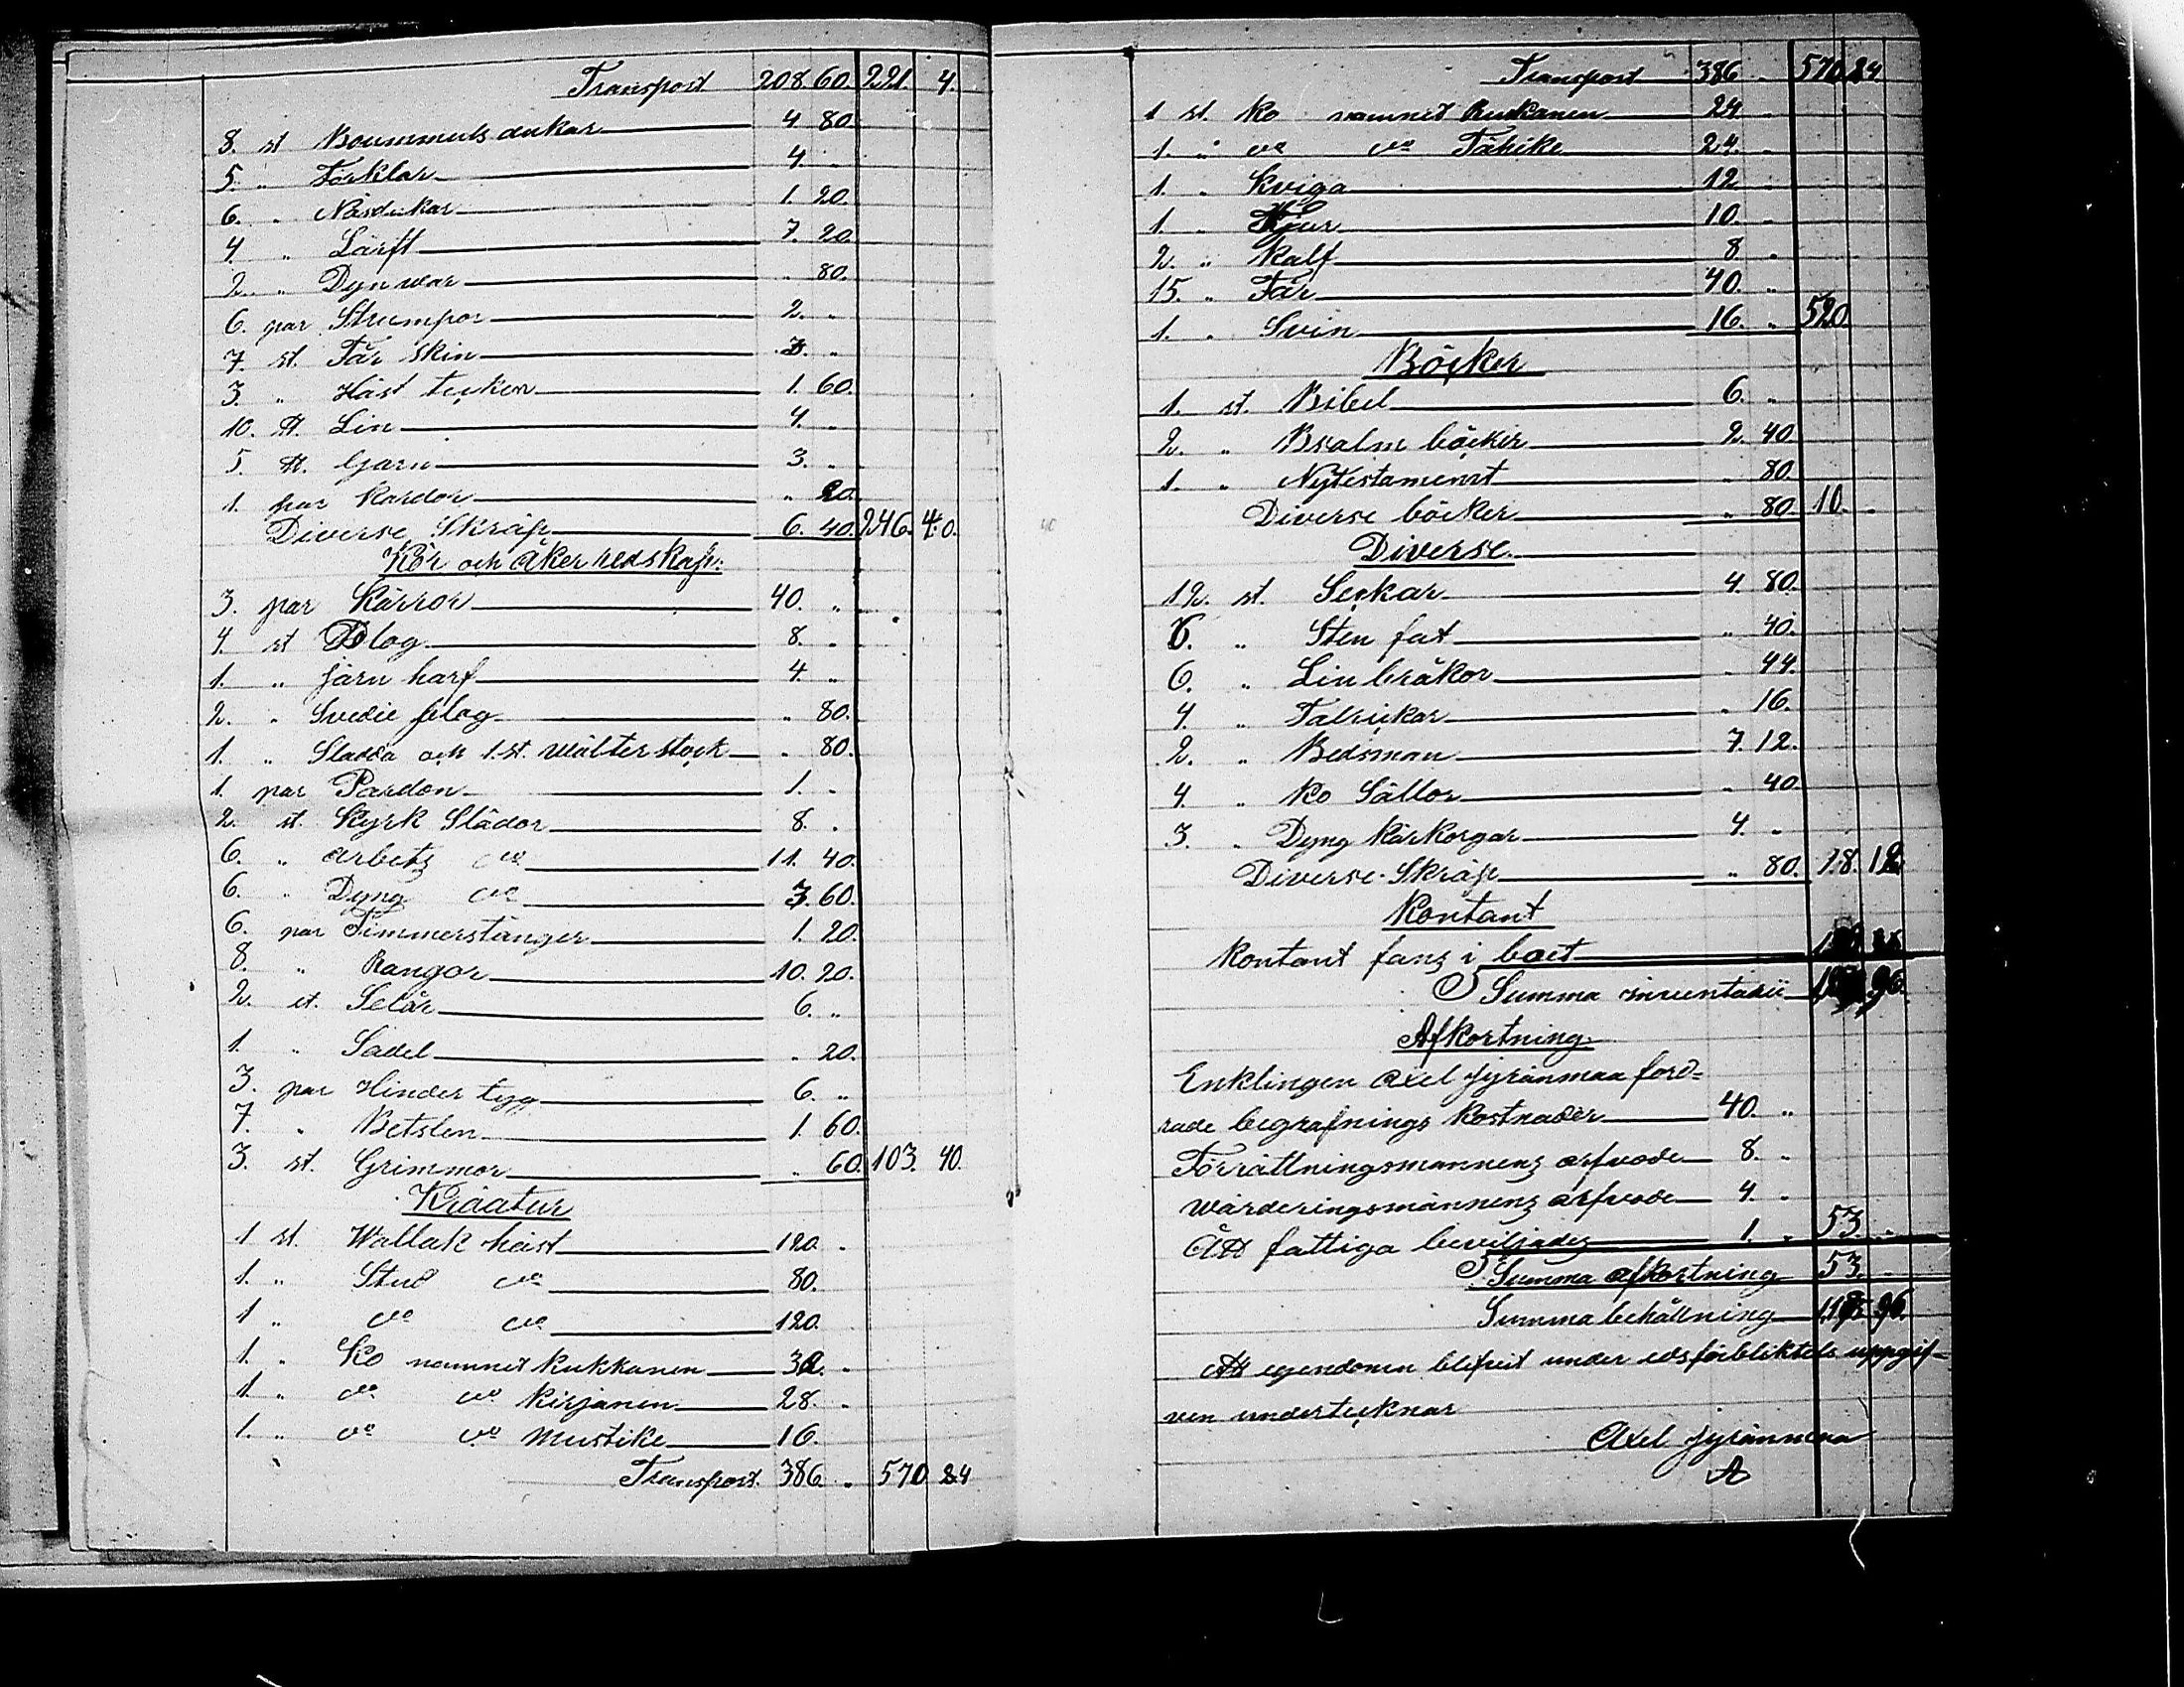 Transport 208. 60. 221. 4.
8. st Boummuls dukar 4 80.
5. " Förklar 4. "
6. " Näsdukar 1. 20.
4. " Lärft 7. 20.
2. " Dynwar " 80.
6. par Strumpor 2. "
7. st. Får skin 3. "
3. " Häst tecken 1. 60.
10. ℔. Lin 4. "
5. ℔. Garn 3. "
1. par Kardor " 20.
Diverse Skräp 6. 40. 246. 40.
Kör och åker redskap:
3. par Kärror 40. "
4. st Plog 8. "
1. " järn harf 4. "
2. " Svedie plog " 80.
1. " Sladda och 1. st. wälter stock " 80.
1. par Pardon 1. "
2. st. Kyrk Slädor 8. "
6. " Arbetz do 11. 40.
6. " Dyng do 3. 60.
6. par Timmerstänger 1. 20.
8. " Rangor 10. 20.
2. st. Selär 6. "
1. " Sadel " 20.
3. par Hinder tyg 6. "
7. " Betslen 1. 60.
3. st. Grimmor " 60. 103. 40.
Kräatur
1 st. Wallak häst 120. "
1. " Stud do 80.
1 " do do 120.
1. " Ko namnet Kukkanen 32. "
1. " do do Kirjanen 28. "
1. " do do Mustike 16.
Transport. 386. " 570 24
Transport 386 " 570 24
1 st. Ko namnet Ruskanen 24 "
1. " do do Tähike 24. "
1. " Kviga 12 "
1. " Tjur 10. "
2. " Kalf 8 "
15. " Får 40. "
1. " Svin 16. " 520.
Böcker
1. st. Bibel 6. "
2. " Bsalm böcker 2. 40
1. " Nytestament " 80.
Diverse böcker " 80. 10. "
Diverse.
12. st. Seckar 4. 80.
6. " Sten fat " 40.
6. " Lin bråkor " 44.
4. " Talrickar " 16.
2. " Bedsman 7. 12.
4. " Ko Sällor " 40.
3. " Dyng Kärkorgar 4. "
Diverse Skräp " 80. 18. 12
Kontant
Kontant fanz i boet
Summa inventarii 96.
Afkortning
Enklingen Axel Jyränmaa ford=
rade begrafnings Kostnader 40. "
Förrättningsmannenz arfvode 8. "
wärderingsmännenz arfvode 4. "
Ått fattiga beviljadez 1. " 53. "
Summa afkortning 53. "
Summa behållning 96.
Att egendomen blifvit under edsförbliktels uppgif=
ven undertecknar
Axel Jyränmaa